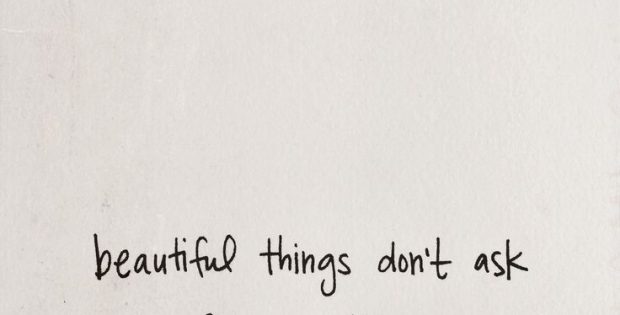 beautiful things don't ask